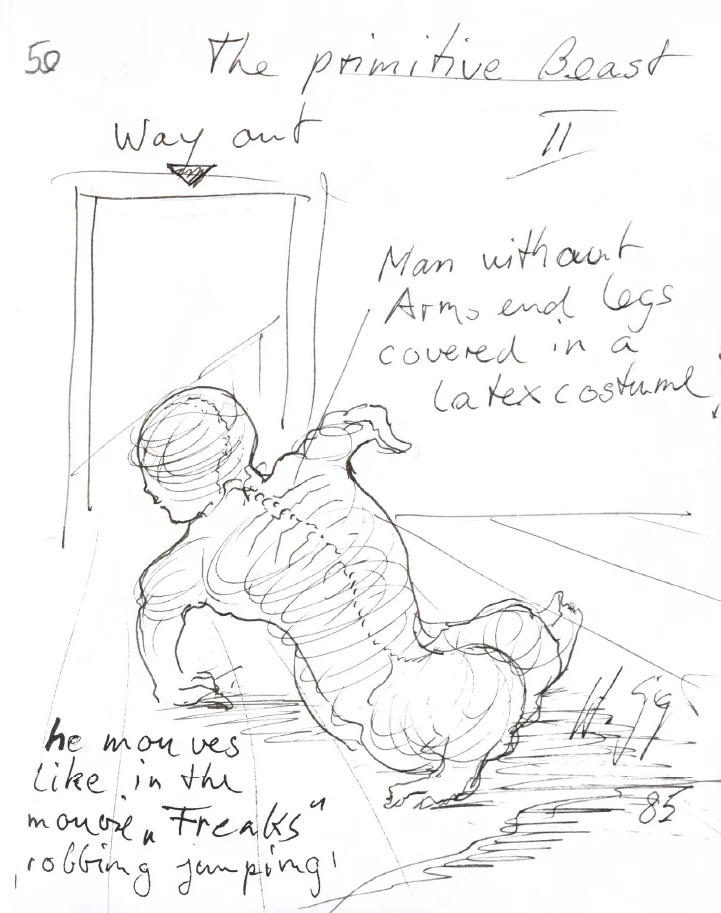 50
The primitive Beast
II
Way out
Man without
Arms end legs
covered in a
latexcostume
he mouves
like in the
mouvie „Freaks"
robbing jumping!
85